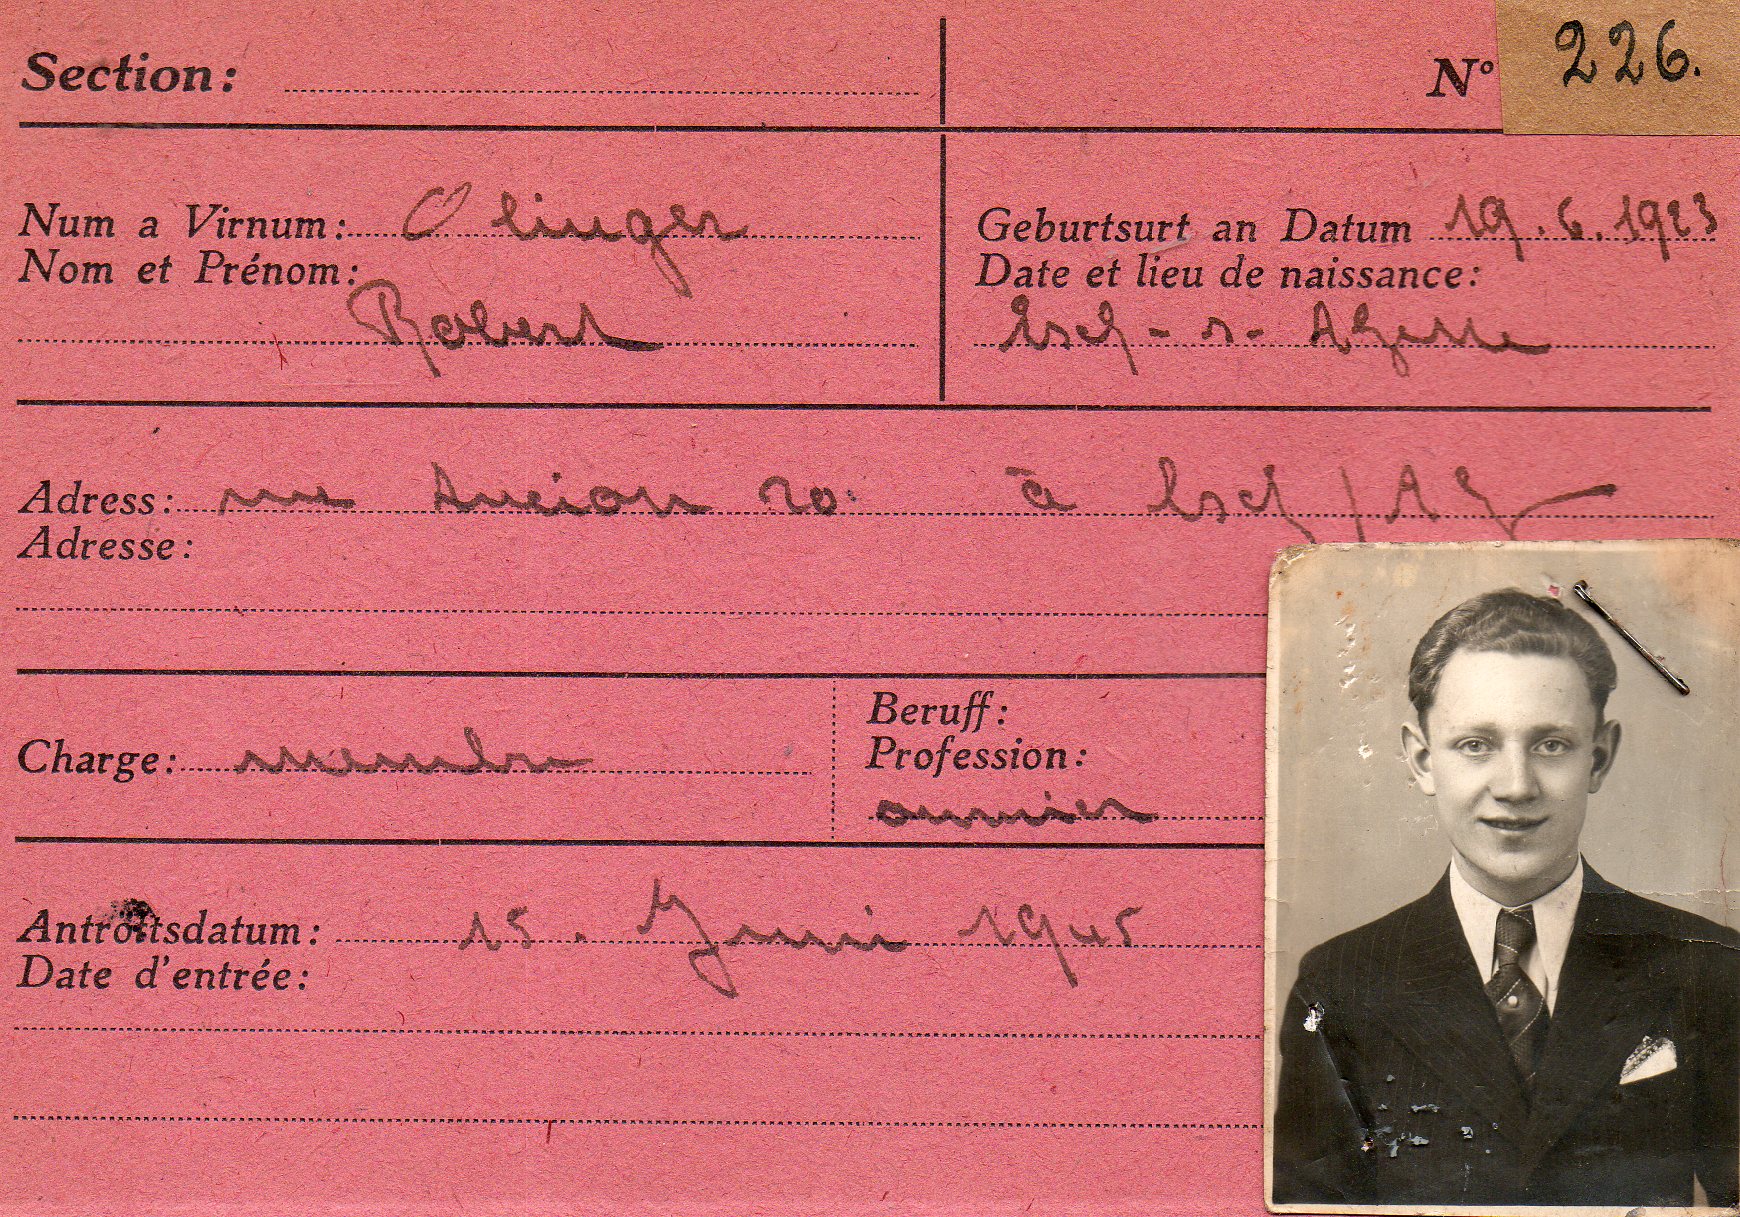 Section:
N° 226.
Num a Virnum: Olinger
Nom et Prénom:
Robert
Geburtsurt an Datum 19.6.1923
Date et lieu de naissance:
Esch-s-Alzette
Adress: rue 20 à Esch/Alz
Adresse:
Charge: membre
Beruff:
Profession:
ouvrier
Antrottsdatum: 15. Juni 1945
Date d'entrée: